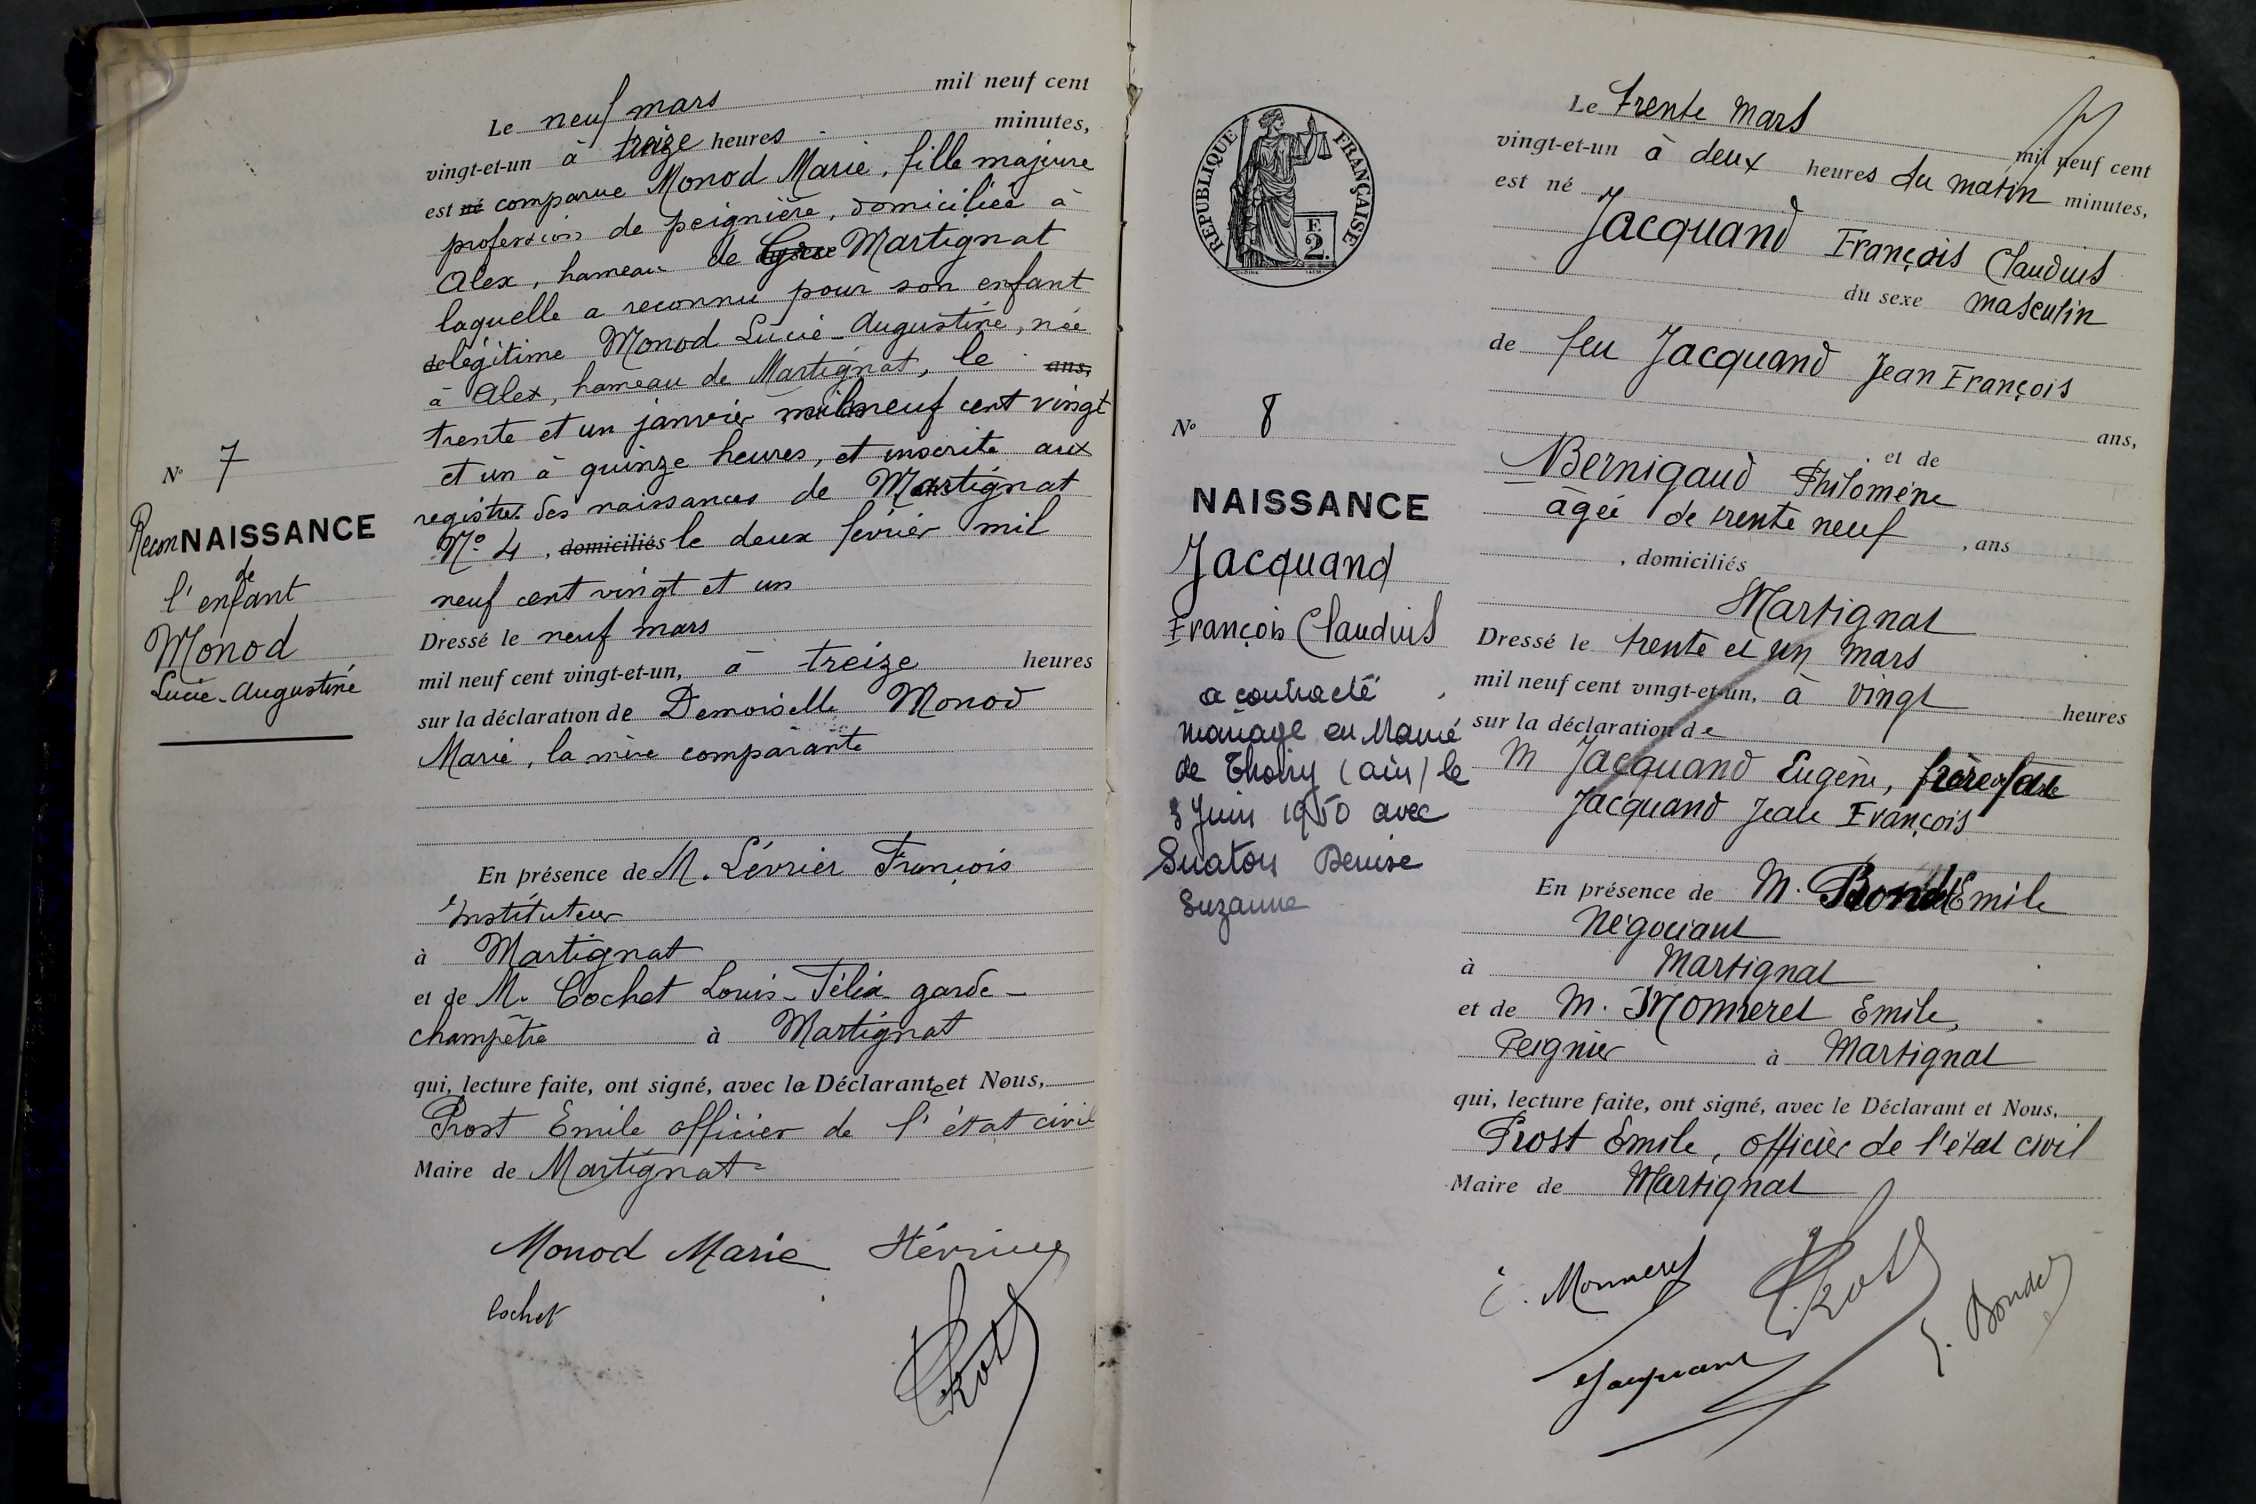 Le neuf mars mil neuf cent
vingt-et-un à treize heures minutes,
est né comparue Monod Marie, fille majeure
profession de peignière, domiciliée à
Alex, hameau de Martignat
laquelle a reconnu pour son enfant
de légitime Monod Lucie-Augustine, née
à Alex, hameau de Martignat, le ans,
trente et un janvier mil neuf cent vingt
et un à quinze heures, et inscrite aux
registres des naissances de Martignat
No 4, domiciliés le deux février mil
neuf cent vingt et un
Dressé le neuf mars
mil neuf cent vingt-et-un, à treize heures
sur la déclaration de Demoiselle Monod
Marie, la mère comparante
En présence de M. Lévrier François
Instituteur
à Martignat
et de M. Cochet Louis-Félix garde-
champêtre à Martignat
qui, lecture faite, ont signé, avec la Déclarante et Nous,
Prost Emile officier de l'état civil
Maire de Martignat
Monod Marie
Cochet
Prost
No 7
ReconNAISSANCE
de
l'enfant
Monod
Lucie-Augustine
RÉPUBLIQUE FRANÇAISE
F.
2.
No 8
NAISSANCE
Jacquand
François Claudius
a contracté
mariage en Mairie
de Thoiry (ain) le
3 Juin 1950 avec
Suaton Denise
Suzanne
Le trente mars mil neuf cent
vingt-et-un à deux heures du matin minutes,
est né
Jacquand François Claudius
du sexe masculin
de feu Jacquand Jean François
ans,
et de
Bernigaud Philomène
âgée de trente neuf, ans
, domiciliés
Martignat
Dressé le trente et un mars
mil neuf cent vingt-et-un, à vingt heures
sur la déclaration de
M Jacquand Eugène, frère
Jacquand Jean François
En présence de M. Bondet Emile
Négociant
à Martignat
et de M. Monneret Emile,
Peignier à Martignat
qui, lecture faite, ont signé, avec le Déclarant et Nous,
Prost Emile, officier de l'état civil
Maire de Martignat
E. Monneret Prost
E. Bondet
Jacquand